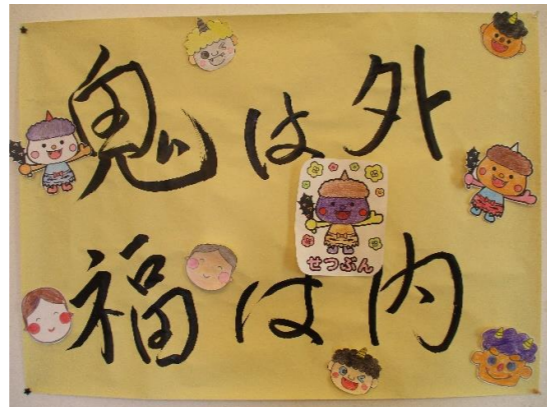 鬼は外
せつぶん
福は内